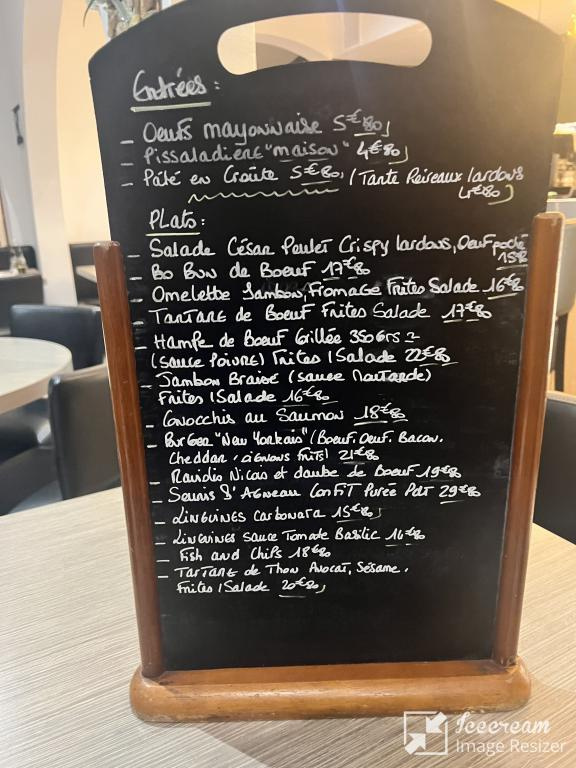 Entrées :
- Oeufs mayonnaise 5€80
- Pissaladière "maison" 4€80
- Pâté en Croûte 5€80, / Tarte Poireaux lardons
4€80
Plats :
- Salade César Poulet Crispy lardons, Oeuf poché
15€80
- Bo Bun de Boeuf 17€80
- Omelette Jambon, Fromage Frites Salade 16€80
- Tartare de Boeuf Frites Salade 17€80
- Hampe de Boeuf Grillée 350grs
(sauce Poivre) Frites / Salade 22€80
- Jambon Braisé (sauce Moutarde)
Frites / Salade 16€80
- Gnocchis au Saumon 18€80
- Burger "New Yorkais" (Boeuf, Oeuf, Bacon,
Cheddar, oignons frits) 21€80
- Raviolis Niçois et daube de Boeuf 19€80
- Souris d'Agneau Confit Purée Pdt 29€80
- Linguines Carbonara 15€80
- Linguines sauce Tomate Basilic 14€80
- Fish and Chips 18€80
- Tartare de Thon Avocat, Sésame,
Frites / Salade 20€80
Icecream
Image Resizer